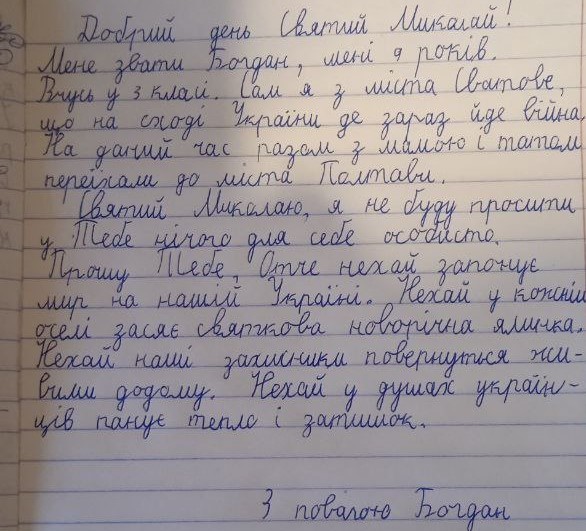 Добрий день Святий Миколай!
Мене звати Богдан, мені 9 років.
Вчусь у 3 класі. Сам я з міста Сватове,
що на сході України де зараз йде війна.
На даний час разом з мамою і татом
переїхали до міста Полтави.
Святий Миколаю, я не буду просити
у Тебе нічого для себе особисто.
Прошу Тебе, Отче нехай запанує
мир на нашій Україні. Нехай у кожній
оселі засяє святкова новорічна ялинка.
Нехай наші захисники повернуться жи-
вими додому. Нехай у душах україн-
ців панує тепло і затишок.
З повагою Богдан